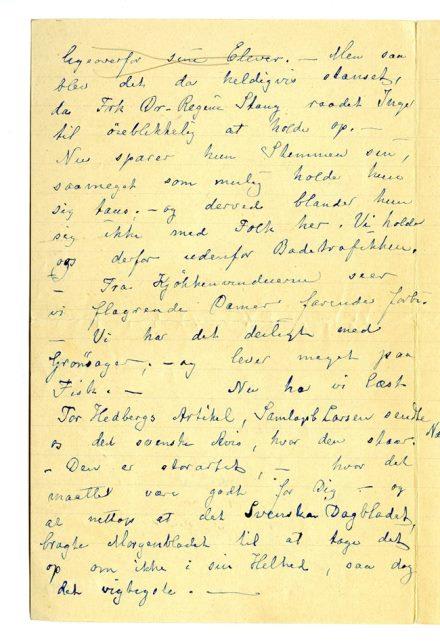 ligeoverfor sine Elever. – Men saa
blev det da heldigvis stanset,
da Frk Dr. Regine Stang raadet Inge
til öieblikkelig at holde op. –
Nu sparer hun Stemmen sin,
saameget som mulig holde hun
sig taus. – og derved blander hun
sig ikke med Folk her. Vi holde
os derfor udenfor Badetrafikken.
– Fra Kjökkenvinduerne seer
vi flagrende Damer farende forbi.
– Vi har det deiligt med
Grönsager, – og lever meget paa
Fisk. – Nu ha vi læst
Tor Hedbergs Artikel, Larsen sendte
os det svenske Avis, hvor den staar.
– Den er storartet, – hvor det
maatte være godt for Dig – og
at nettop at det Svenska Dagbladet,
bragte Morgenbladet til at tage det
op om ikke i sin Helhed, saa dog
det vigtigste. –